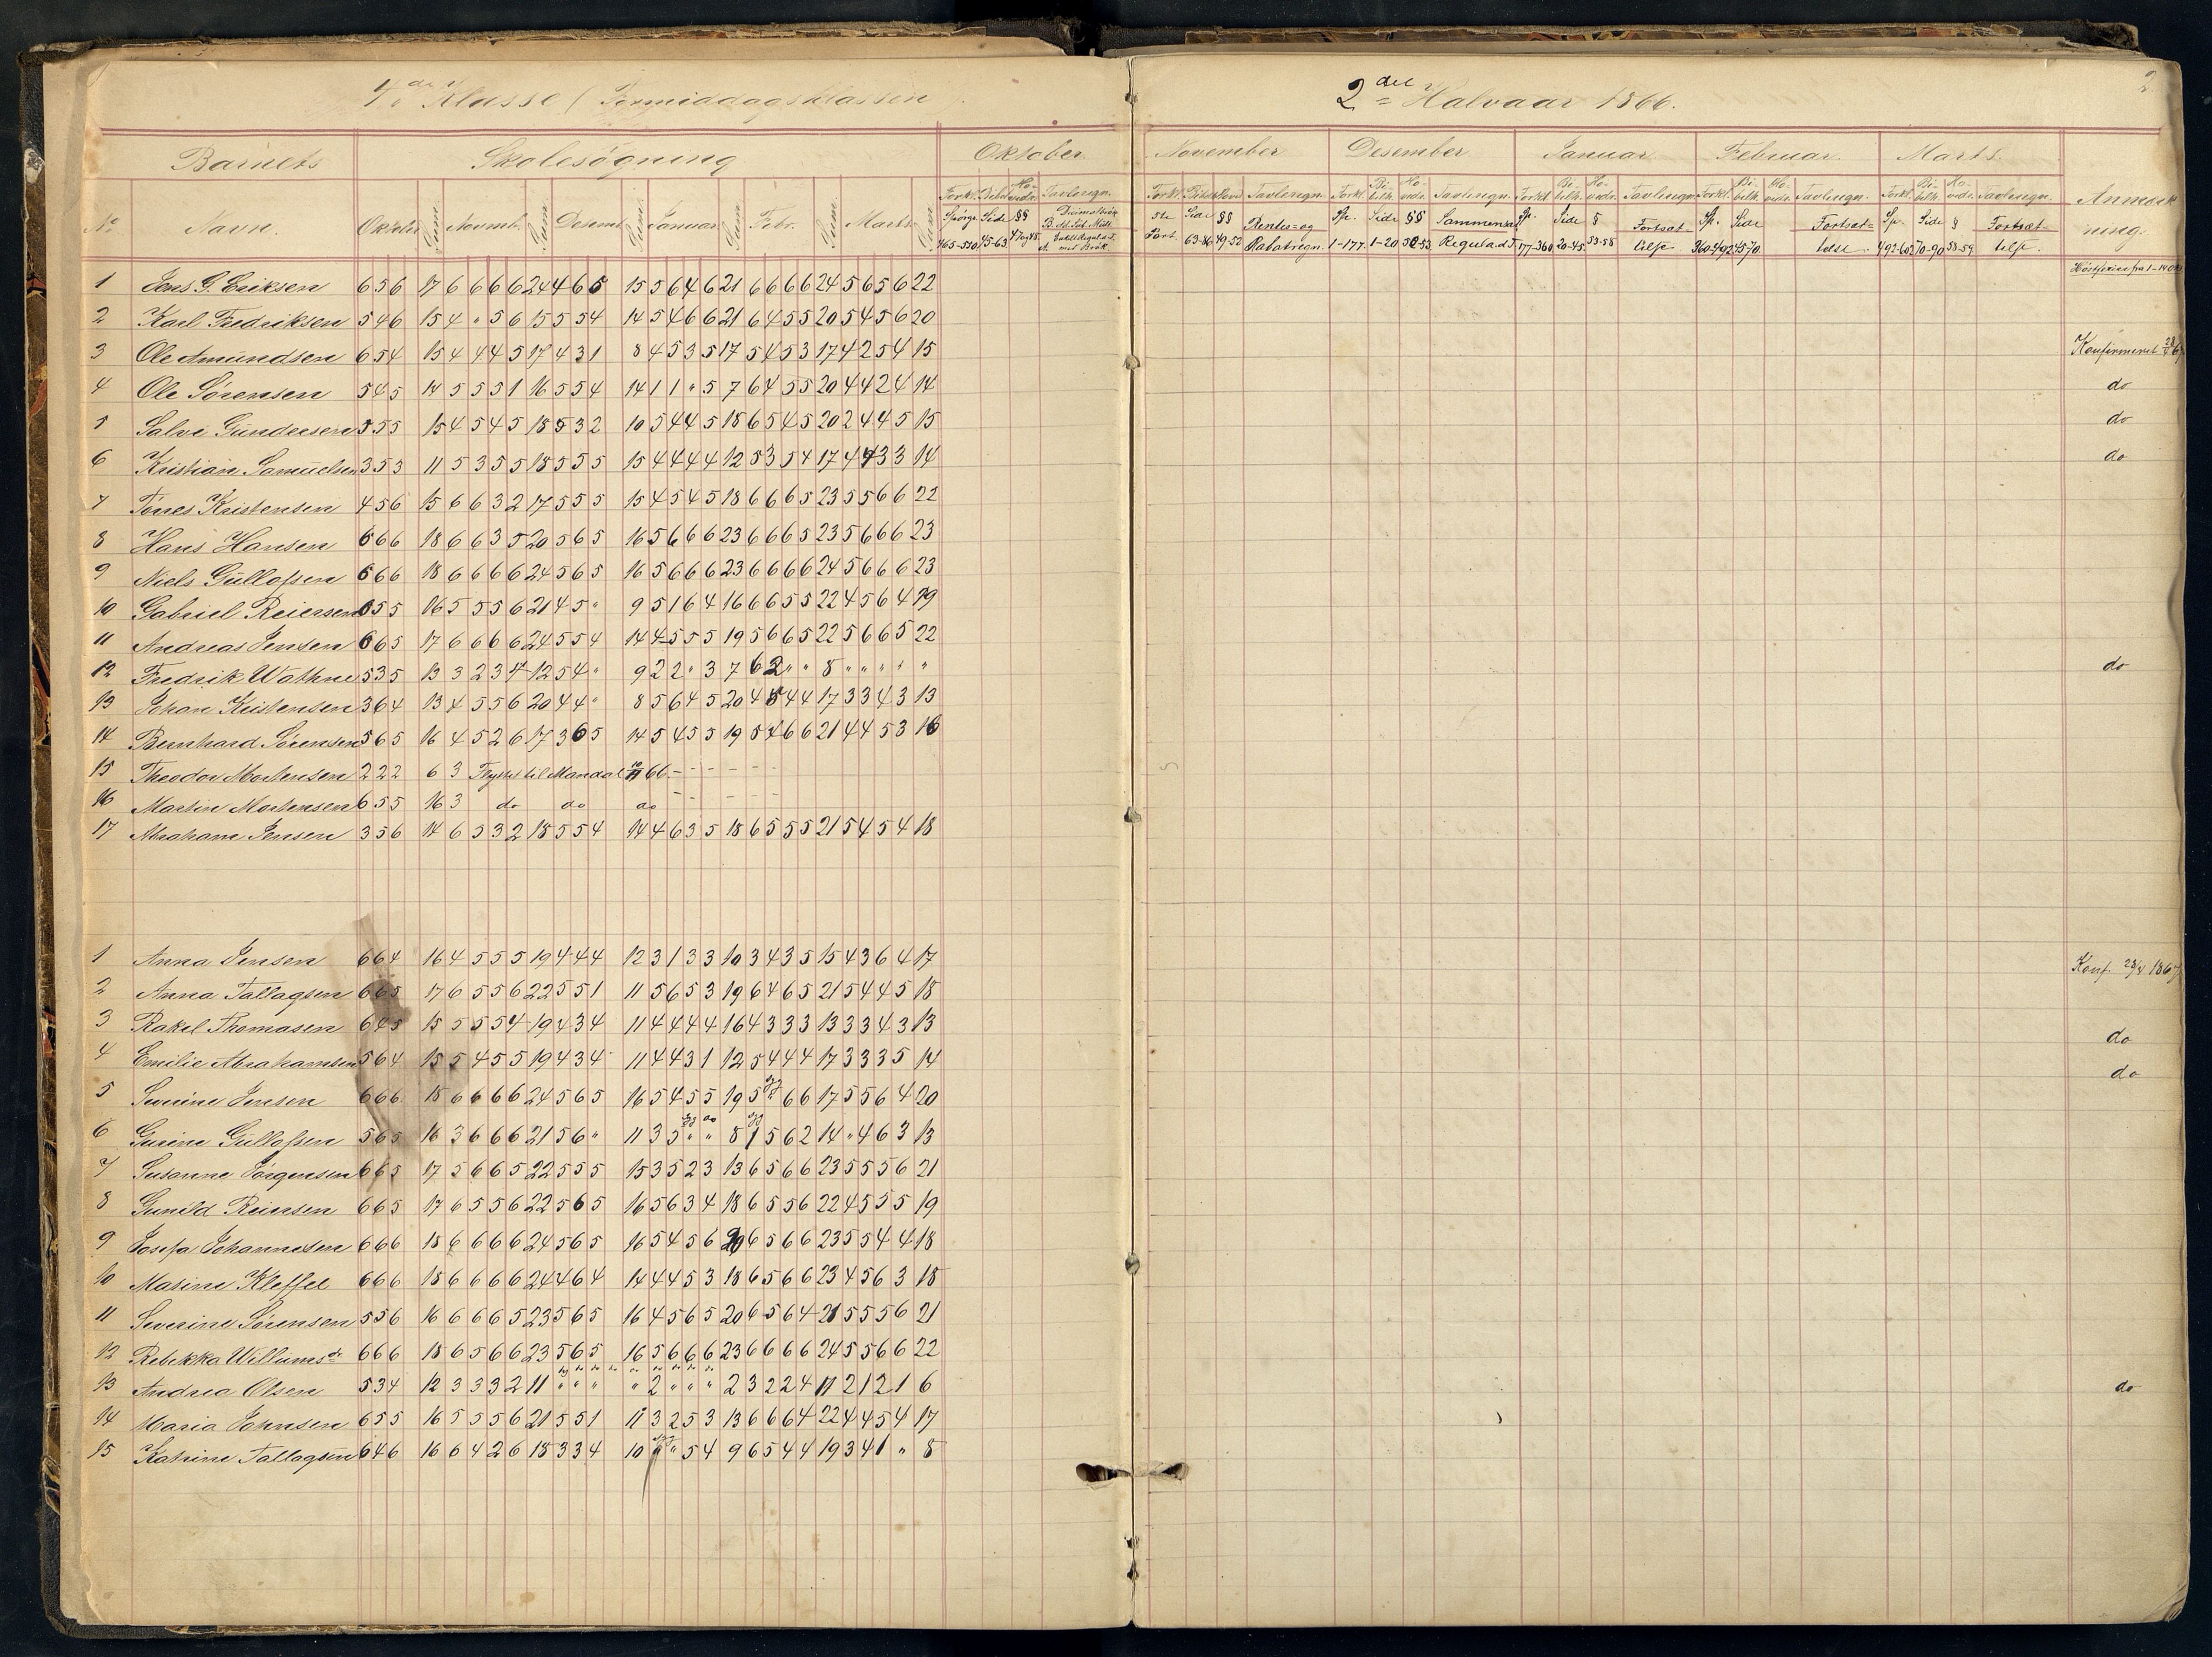 Klasse (Formiddagsklassen)
2det Halvaar 1866.
2
Barnets Skolesögning Oktober November Desember Januar Februar Marts Anmærkning
No Navn. Oktober Sum Novemb. Sum Desemb Sum Januar Sum Febr. Sum Marts Sum
Spörgs Side §§ Side §§ Rentes- og Sp. Side §§ Sammensat Sp. Side § Fortsat- Sp. Side Fortsat- Sp. Side § Fortsæt-
465-510 45-63 63-86 49-52 Rabatregn. 1-177 1-20 Regulad. 177-360 20-45 53-58 telse 360-492 45-70 telse 492-602 70-90 telse.
1 Jens G. Eriksen 6 5 6 17 6 6 6 6 24 4 6 5 15 5 6 4 6 21 6 6 6 6 24 5 6 5 6 22
2 Karl Fredriksen 5 4 6 15 4 " 5 6 15 5 5 4 14 5 4 6 6 21 6 4 5 5 20 5 4 5 6 20
3 Ole Amundsen 6 5 4 15 4 4 4 5 17 4 3 1 8 4 5 3 5 17 5 4 5 3 17 4 2 5 4 15 Konfirmeret
4 Ole Sörensen 5 4 5 14 5 5 5 1 16 5 5 4 14 1 1 " 5 7 6 4 5 5 20 4 4 2 4 14 do
5 Salve Gundersen 5 5 5 15 4 5 4 5 18 5 3 2 10 5 4 4 5 18 6 5 4 5 20 2 4 4 5 15 do
6 Kristian Samuelsen 3 5 3 11 5 3 5 5 18 5 5 5 15 4 4 4 4 12 5 3 5 4 17 4 4 3 3 14 do
7 Tönes Kristensen 4 5 6 15 6 6 3 2 17 5 5 5 15 4 5 4 5 18 6 6 6 5 23 5 5 6 6 22
8 Hans Hansen 6 6 6 18 6 6 3 5 20 5 6 5 16 5 6 6 6 23 6 6 6 5 23 5 6 6 6 23
9 Niels Gullofsen 6 6 6 18 6 6 6 6 24 5 6 5 16 5 6 6 6 23 6 6 6 6 24 5 6 6 6 23
10 Gabriel Reiersen 6 5 5 16 5 5 5 6 21 4 5 " 9 5 1 6 4 16 6 6 5 5 22 4 5 6 4 19
11 Andreas Jensen 6 6 5 17 6 6 6 6 24 5 5 4 14 4 5 5 5 19 5 6 6 5 22 5 6 6 5 22
12 Fredrik Wathne 5 3 5 13 3 2 3 4 12 5 4 " 9 2 2 " 3 7 6 2 " " 8 " " " " " do
13 Johan Kristensen 3 6 4 13 4 5 5 6 20 4 4 " 8 5 6 4 5 20 4 5 4 4 17 3 3 4 3 13
14 Bernhard Sörensen 5 6 5 16 4 5 2 6 17 3 6 5 14 5 4 5 5 19 5 4 6 6 21 4 4 5 3 16
15 Theodor Mortensen 2 2 2 6 3 Flyttet til Mandal 10/11 66 - - - - - -
16 Martin Mortensen 6 5 5 16 3 do do do - - - - -
17 Abraham Jensen 3 5 6 14 6 5 3 2 18 5 5 4 14 4 6 3 5 18 6 5 5 5 21 5 4 5 4 18
1 Anna Jensen 6 6 4 16 4 5 5 5 19 4 4 4 12 3 1 3 3 10 3 4 3 5 15 4 3 6 4 17 Konf. 28/4 1867
2 Anna Tallagsen 6 6 5 17 6 5 5 6 22 5 5 1 11 5 6 5 3 19 6 4 6 5 21 5 4 4 5 18
3 Rakel Thomasen 6 4 5 15 5 5 5 4 19 4 3 4 11 4 4 4 4 16 4 3 3 3 13 3 3 4 3 13 do
4 Emilie Abrahamsen 5 6 4 15 5 4 5 5 19 4 3 4 11 4 4 3 1 12 5 4 4 4 17 3 3 3 5 14 do
5 Jensen 6 6 6 18 6 6 6 6 24 5 6 5 16 5 4 5 5 19 5 6 6 17 5 5 6 4 20
6 Gurine Gullofsen 5 6 5 16 3 6 6 6 21 5 6 " 11 3 5 " " 8 1 5 6 2 14 " 4 6 3 13
7 Susanne Jörgensen 6 6 5 17 5 6 6 5 22 5 5 5 15 3 5 2 3 13 6 5 6 6 23 5 5 5 6 21
8 Gunild Reiersen 6 6 5 17 6 5 5 6 22 5 6 5 16 5 6 3 4 18 6 5 5 6 22 4 5 5 5 19
9 Josefa Johannesen 6 6 6 18 6 6 6 6 24 5 6 5 16 5 4 5 6 20 6 5 6 6 23 5 5 4 4 18
10 Masine Kleffel 6 6 6 18 6 6 6 6 24 4 6 4 14 4 4 5 3 18 6 5 6 6 23 4 5 6 3 18
11 Severine Sörensen 5 5 6 16 6 6 6 5 23 5 6 5 16 4 5 6 5 20 6 5 6 4 21 5 5 5 6 21
12 Rebekka Willumsdr 6 6 6 18 6 5 6 6 23 5 6 5 16 5 6 6 6 23 6 6 6 6 24 5 5 6 6 22
13 Andrea Olsen 5 3 4 12 3 3 3 2 11 " " " " 2 " " " 2 3 2 2 4 11 2 1 2 1 6 do
14 Maria Johnsen 6 5 5 16 5 5 5 6 21 5 5 1 11 3 2 5 3 13 6 6 6 4 22 4 4 5 4 17
15 Katrine Tallagsen 6 4 6 16 6 4 2 6 18 3 3 4 10 " 5 4 9 6 5 4 4 19 3 4 1 " 8